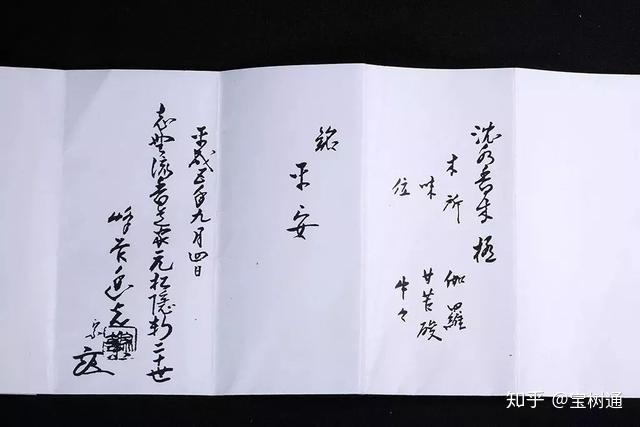 沈水香木 極
木所 伽羅
味 甘苦酸
位
銘
平安
平成五年九月四日
志野流香道家元松隠軒二十世
峰谷幽光
宗玄
知乎 @宝树通